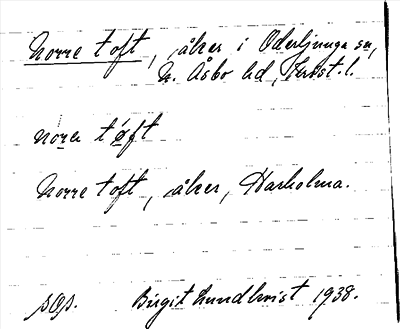 Norre toft, åker i Oderljunga sn,
N. Åsbo hd, Krist. l.
norer tøft
Norre toft, åker, Harholma.
sgs. Birgit Lundkvist 1938.